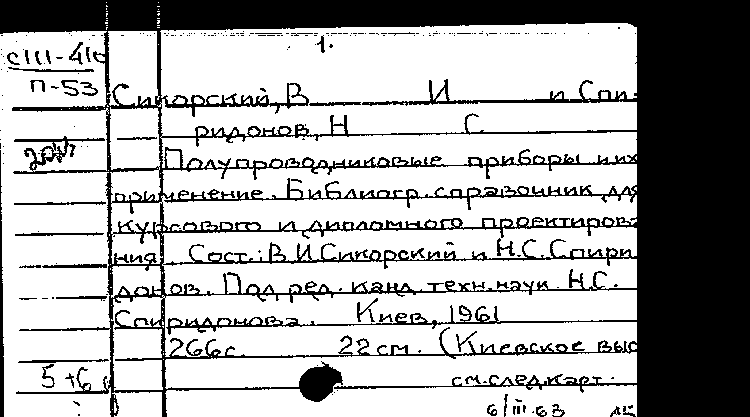 1.
СIII-410
П-53
Сикорский, В И и Спи-
ридонов, Н С
Полупроводниковые приборы и их
применение. Библиогр. справочник для
курсового и дипломного проектирова
ния. Сост.: В.И. Сикорский и Н.С. Спири
донов. Под ред. канд. техн. наук Н.С.
Спиридонова. Киев, 1961
266с. 22см. (Киевское выс
5+6 см. след. карт.
6/III-63